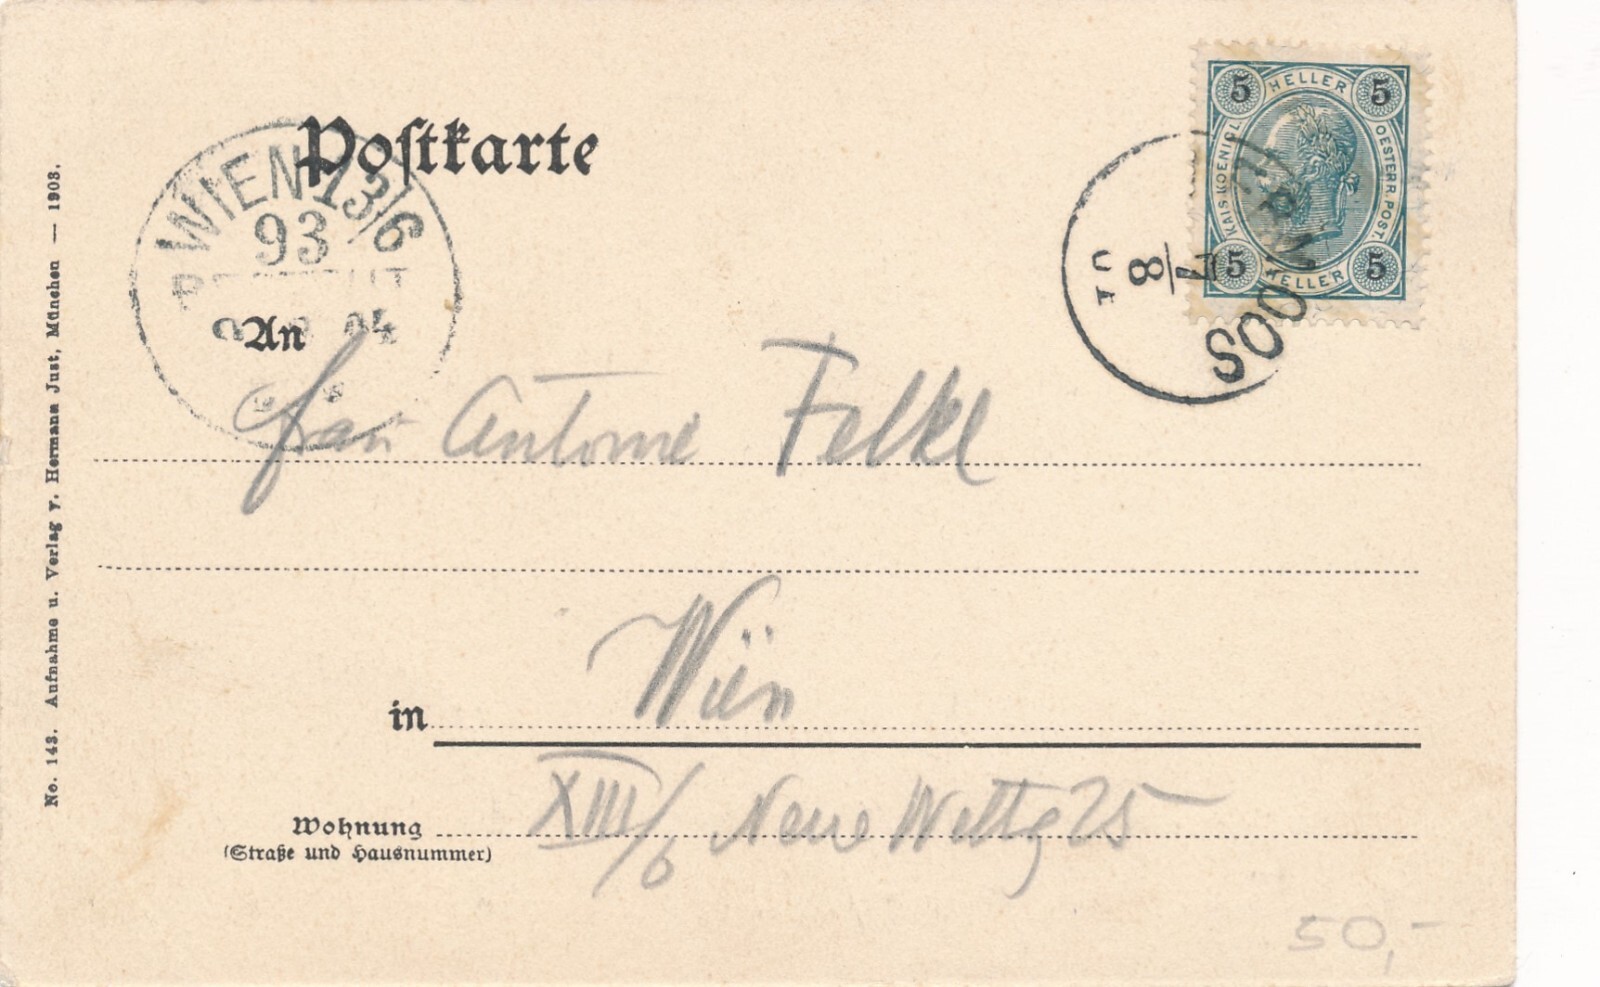 Postkarte
WIEN 13/6
93
5 HELLER 5
KAIS. KOENIGL.
OESTERR. POST.
5 HELLER 5
MOOS
7
8
An
Frau Antonie Felkl
in Wien
Wohnung XIII/6 Neue Weltg 25
(Straße und Hausnummer)
50,-
No. 143. Aufnahme u. Verlag v. Hermann Just, München — 1903.